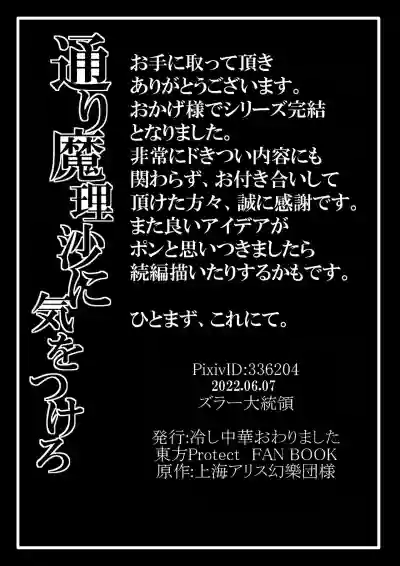 通り魔理沙に
気をつけろ
お手に取って頂き
ありがとうございます。
おかげ様でシリーズ完結
となりました。
非常にドきつい内容にも
関わらず、お付き合いして
頂けた方々、誠に感謝です。
また良いアイデアが
ポンと思いつきましたら
続編描いたりするかもです。
ひとまず、これにて。
PixivID:336204
2022.06.07
ズラー大統領
発行:冷し中華おわりました
東方Protect FAN BOOK
原作:上海アリス幻樂団様